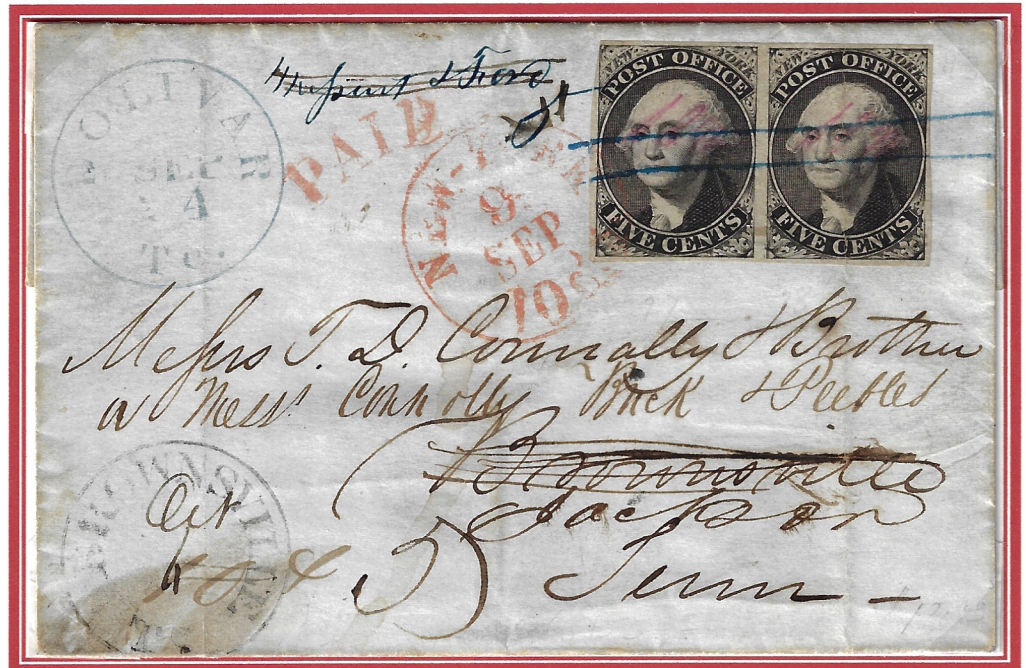 BOLIVAR
SEP
24
Te.
PAID
NEW-YORK
9
SEP
10cs
NEW YORK
POST OFFICE
FIVE CENTS
NEW YORK
POST OFFICE
FIVE CENTS
Messrs T. D. Connally & Brother
or Messrs Connolly Buck & Peebles
Brownsville
Jackson
Tenn
BROWNSVILLE
Oct
4
5